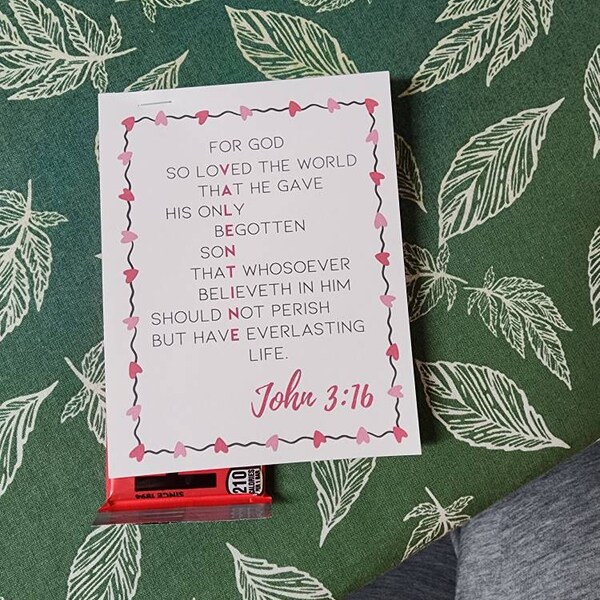 FOR GOD
SO LOVED THE WORLD
THAT HE GAVE
HIS ONLY
BEGOTTEN
SON
THAT WHOSOEVER
BELIEVETH IN HIM
SHOULD NOT PERISH
BUT HAVE EVERLASTING
LIFE.
John 3:16
SINCE 1894
210
CALORIES